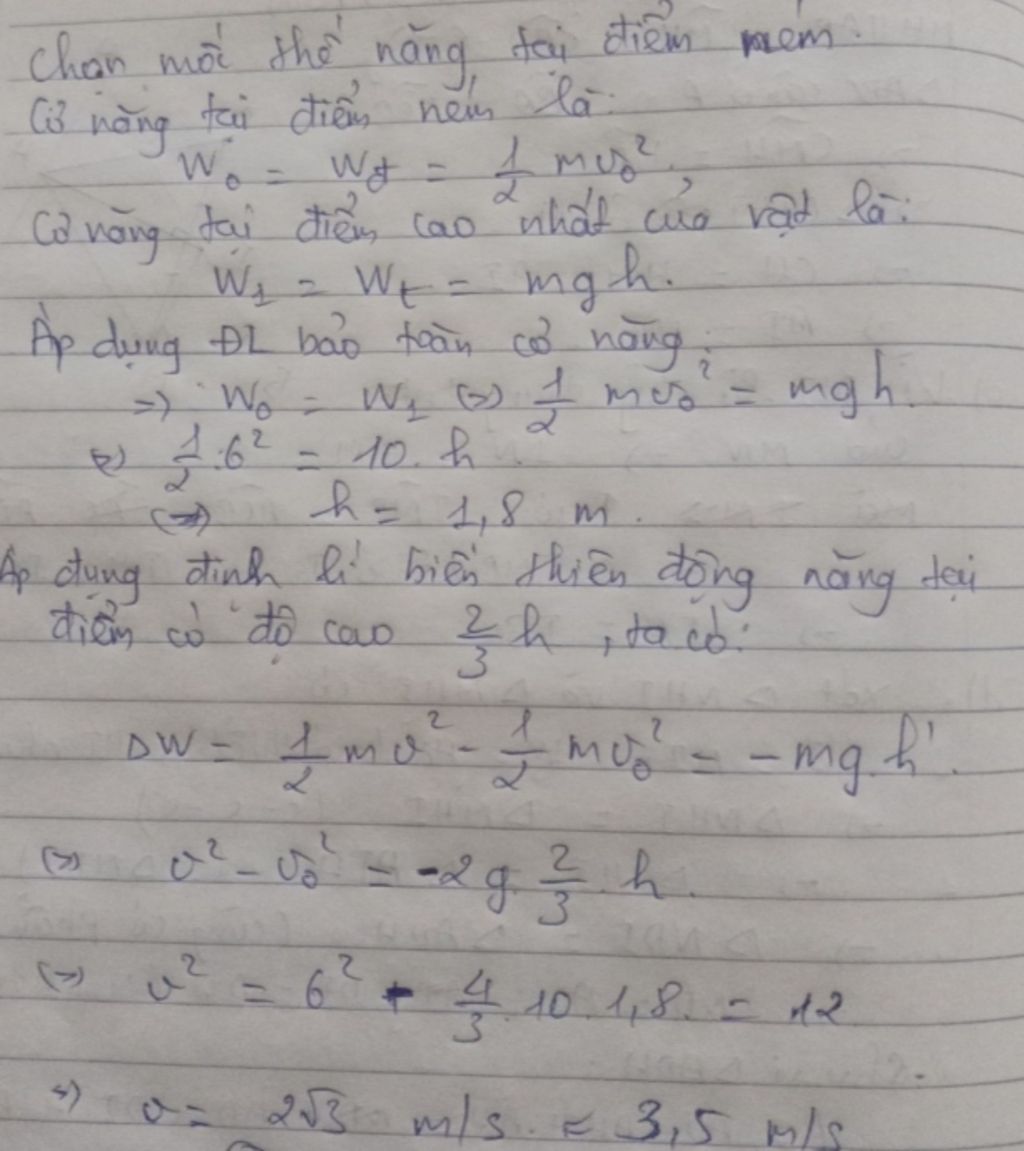 Chọn mốc thế năng tại điểm ném.
Cơ năng tại điểm ném là:
W₀ = Wđ = 1/2 mv₀²
Cơ năng tại điểm cao nhất của vật là:
W₁ = Wt = mgh.
Áp dụng ĐL bảo toàn cơ năng:
=> W₀ = W₁ <=> 1/2 mv₀² = mgh.
<=> 1/2 . 6² = 10 . h.
<=> h = 1,8 m.
Áp dụng định lí biến thiên động năng tại
điểm có độ cao 2/3 h, ta có:
ΔW = 1/2 mv² - 1/2 mv₀² = -mg.h'.
<=> v² - v₀² = -2g. 2/3 . h.
<=> v² = 6² - 4/3 . 10 . 1,8 . = 12
=> v = 2√3 m/s. ≈ 3,5 m/s